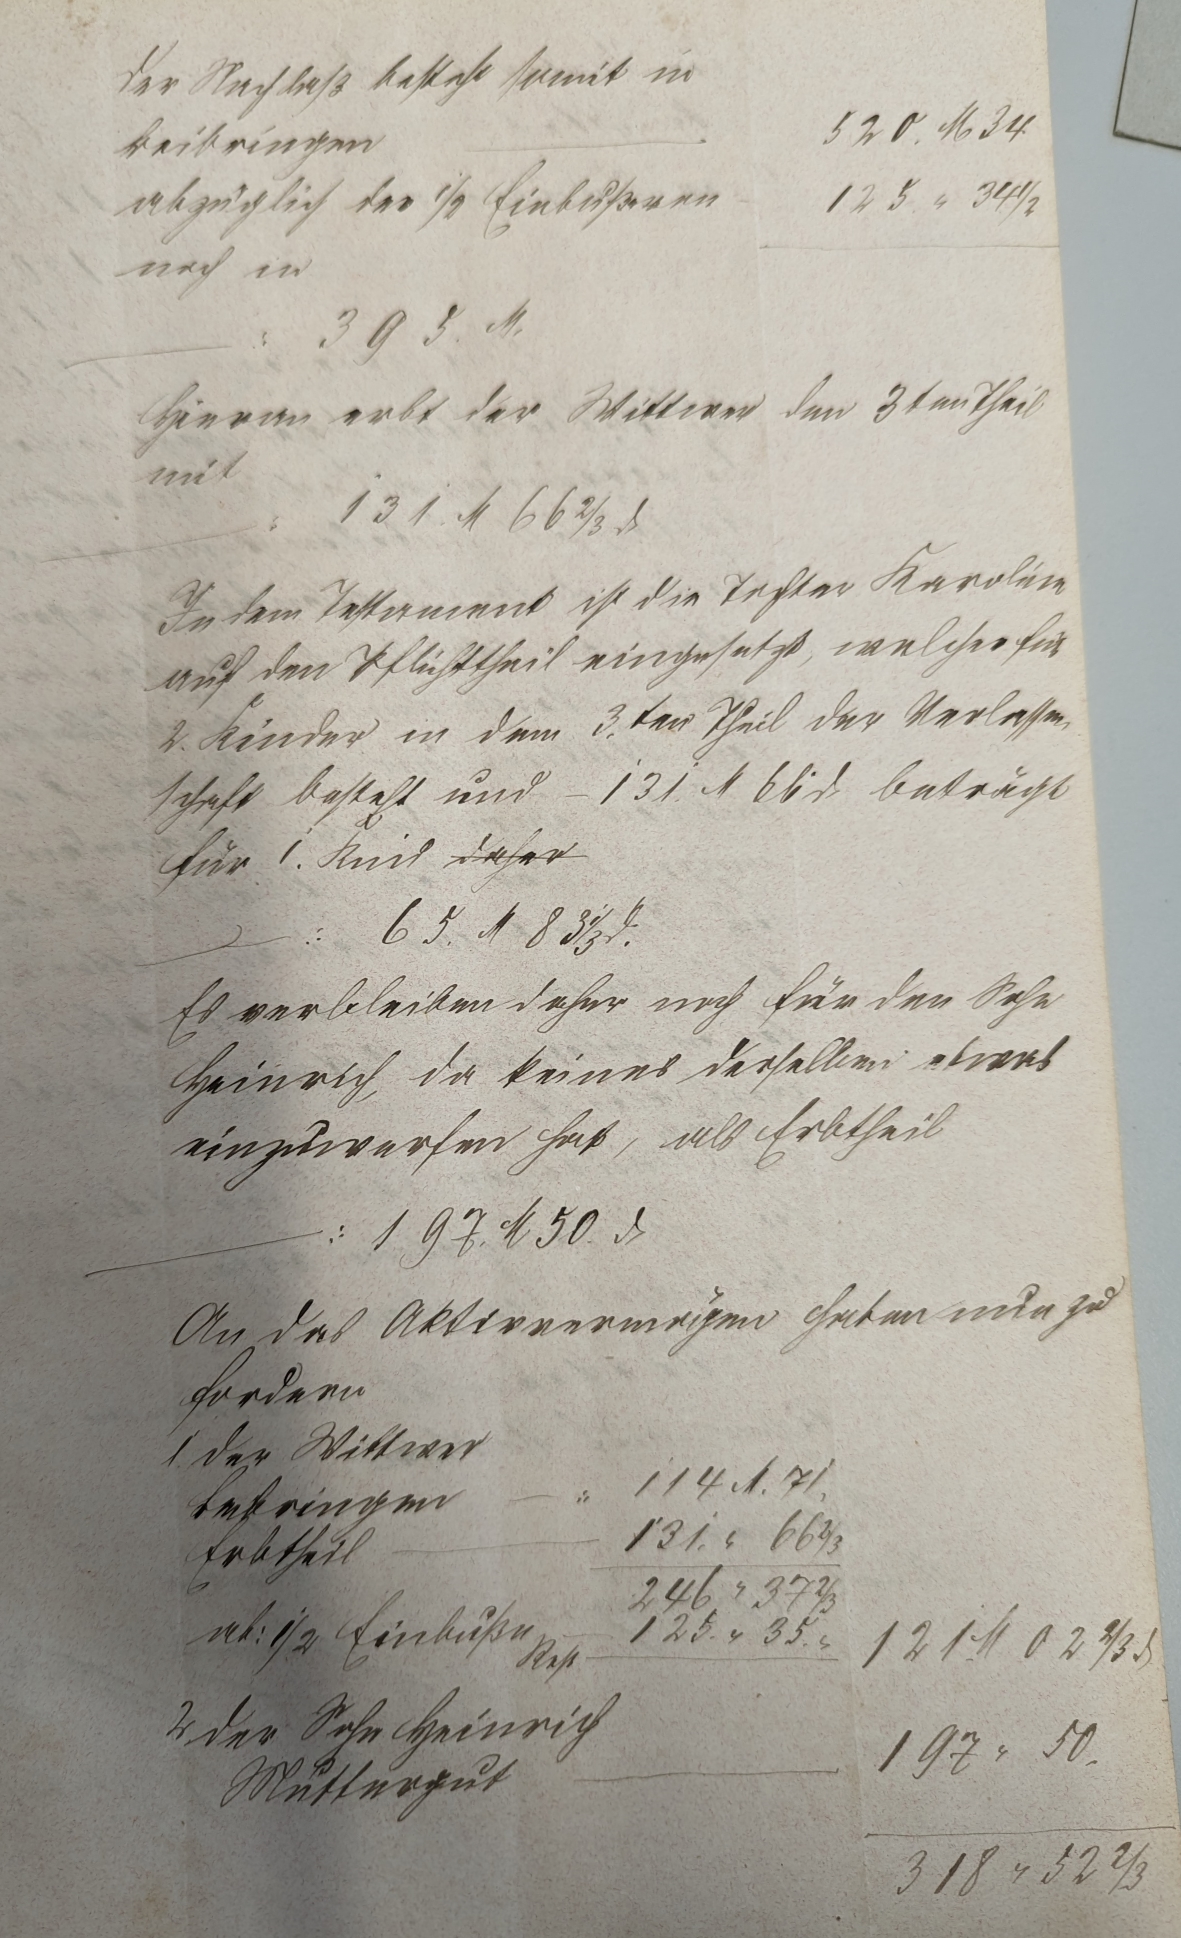 Der Nachlaß besteht somit in
Beibringen 520. M 34
abzüglich der 1/2 Einbußevon 125. " 34 1/2
noch in
: 395. M.
Hievon erbt der Wittwer den 3ten Theil
mit
: 131. M 66 2/3 d
In dem Testament ist die Tochter Karoline
auf den Pflichttheil eingesetzt, welcher für
2. Kinder in dem 3.ten Theil der Verlassen
schaft besteht und - 131. M 66 d beträgt
für 1. Kind daher
: 65. M 83 1/3 d.
Es verbleiben daher noch für den Sohn
Heinrich, da keines derselben etwas
einzuwerfen hat, als Erbtheil
: 197. M 50. d
An das Aktivvermögen haben nun zu
fordern
1. der Wittwer
Beibringen : 114 M. 71.
Erbtheil 131. " 66 2/3
246 " 37 2/3
ab: 1/2 Einbuße 125. " 35. "
Rest 121 M 02 2/3 d
2. der Sohn Heinrich
Muttergut 197 " 50.
318 " 52 2/3